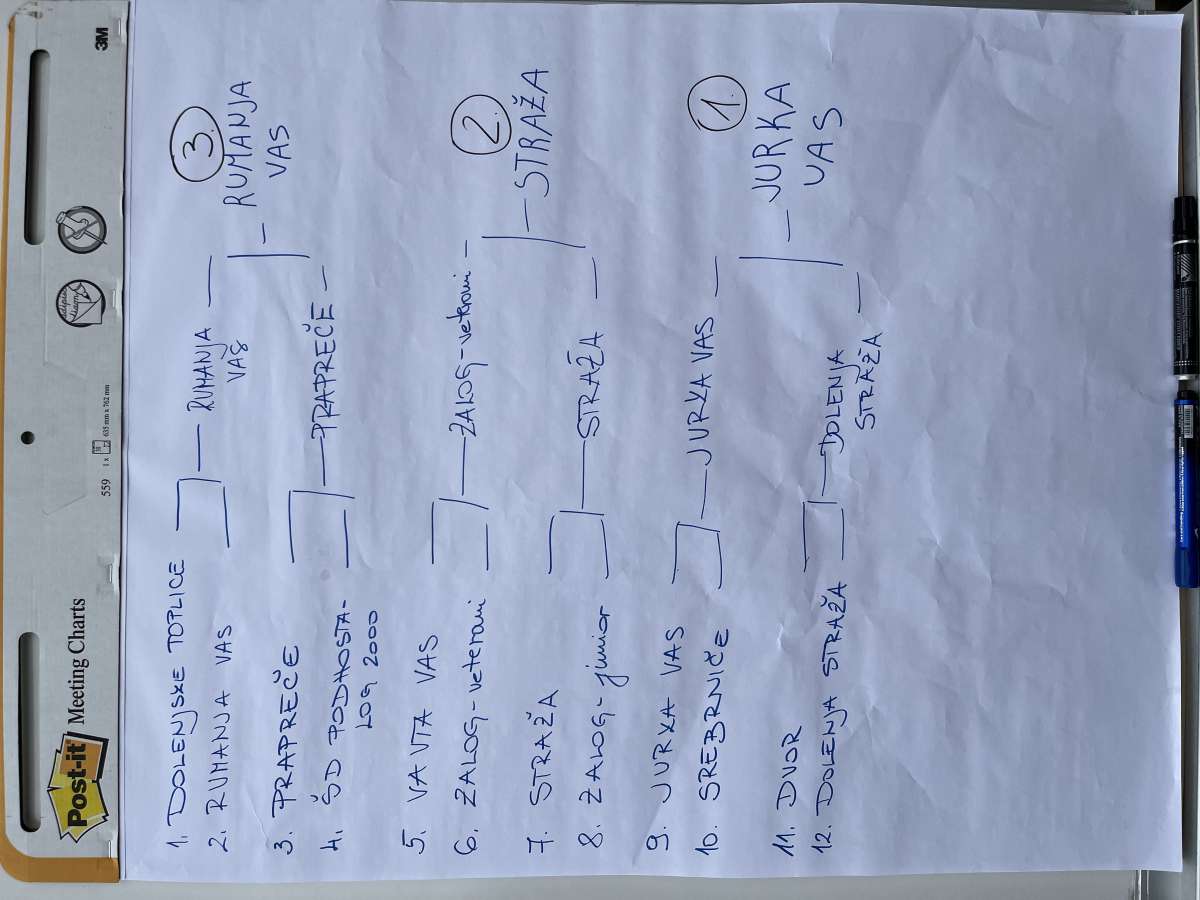 Post-it Meeting Charts
559 1 x 30 635 mm x 762 mm
3M
1. DOLENJSKE TOPLICE
2. RUMANJA VAS
3. PRAPREČE
4. ŠD PODHOSTA-
LOG 2000
5. VAVTA VAS
6. ZALOG-veterani
7. STRAŽA
8. ZALOG-junior
9. JURKA VAS
10. SREBRNIČE
11. DVOR
12. DOLENJA STRAŽA
RUMANJA
VAS
PRAPREČE
ZALOG-veterani
STRAŽA
JURKA VAS
DOLENJA
STRAŽA
3.
RUMANJA
VAS
2.
STRAŽA
1.
JURKA
VAS